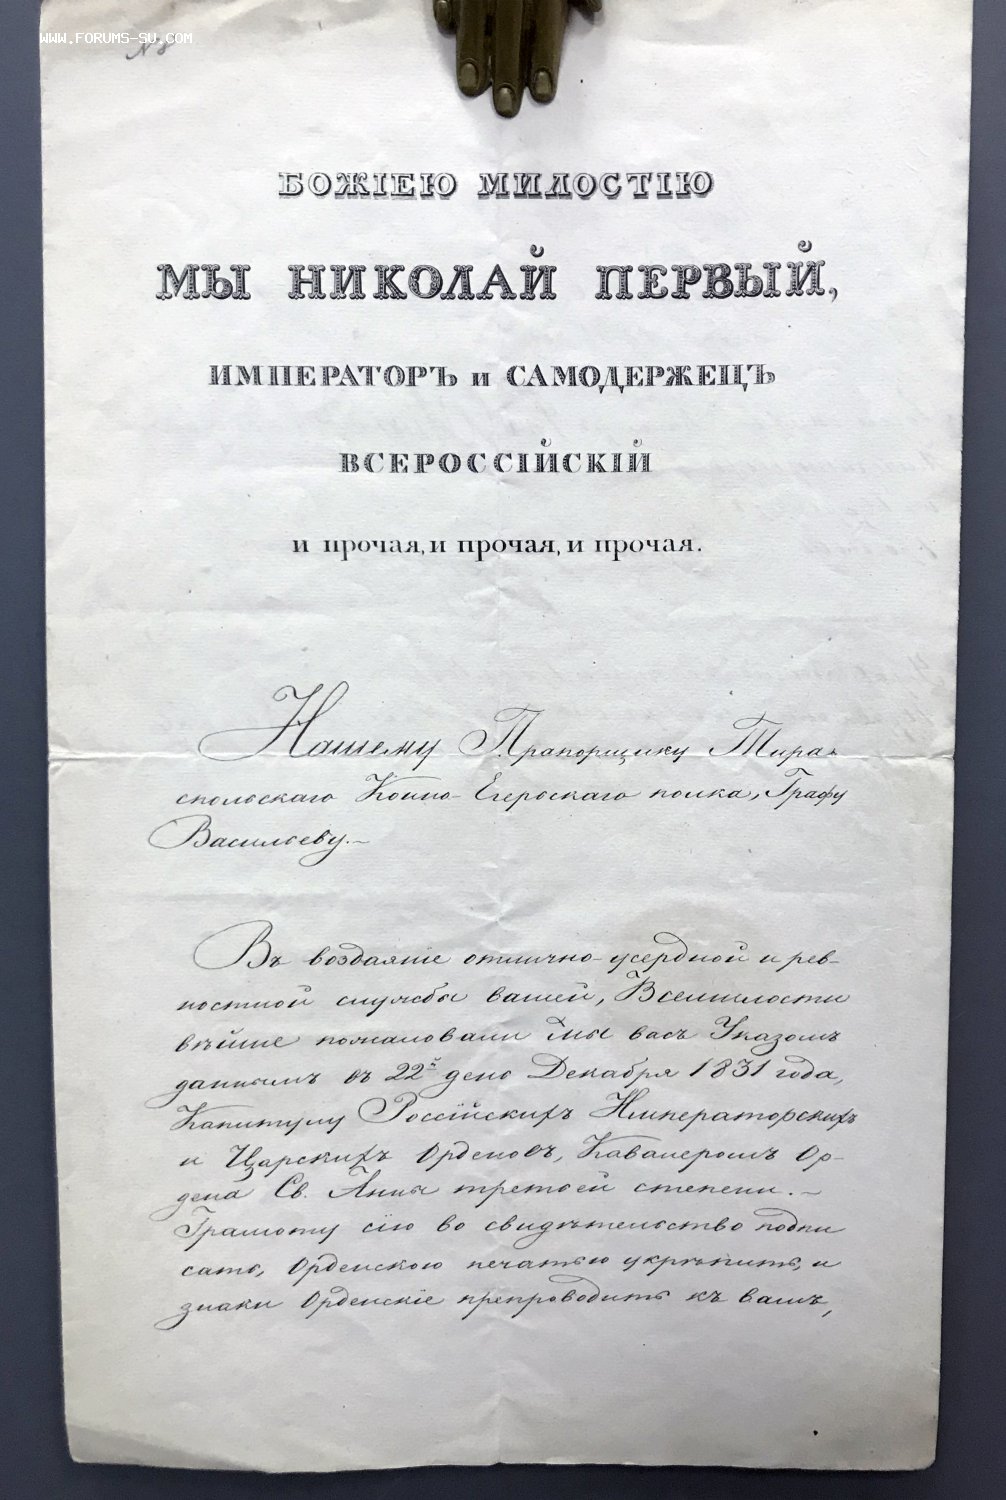 WWW.FORUMS-SU.COM
N 8
БОЖІЕЮ МИЛОСТІЮ
МЫ НИКОЛАЙ ПЕРВЫЙ,
ИМПЕРАТОРЪ и САМОДЕРЖЕЦЪ
ВСЕРОССІЙСКІЙ
и прочая, и прочая, и прочая.
Нашему Прапорщику Тира-
спольскаго Конно-Егерскаго полка, Графу
Васильеву.-
Въ воздаяніе отлично-усердной и рев-
ностной службы вашей, Всемилости
вѣйше пожаловали Мы васъ Указомъ
даннымъ въ 22й день Декабря 1831 года,
Капитулу Россійскихъ Императорскихъ
и Царскихъ Орденовъ, Кавалеромъ Ор-
дена Св. Анны третьей степени.-
Грамоту сію во свидѣтельство подпи
сать, Орденскою печатью укрѣпить, и
знаки Орденскіе препроводить къ вамъ,